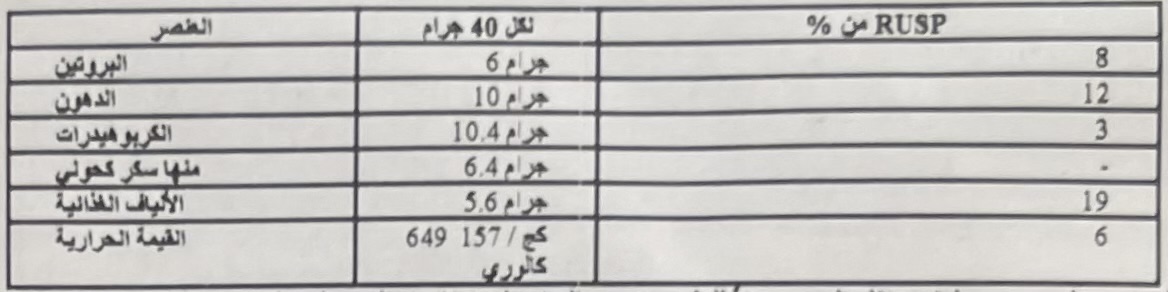 العنصر لكل 40 جرام % من RUSP
البروتين 6 جرام 8
الدهون 10 جرام 12
الكربوهيدرات 10.4 جرام 3
منها سكر كحولي 6.4 جرام -
الألياف الغذائية 5.6 جرام 19
القيمة الحرارية 649 157 / كج 6
كالوري